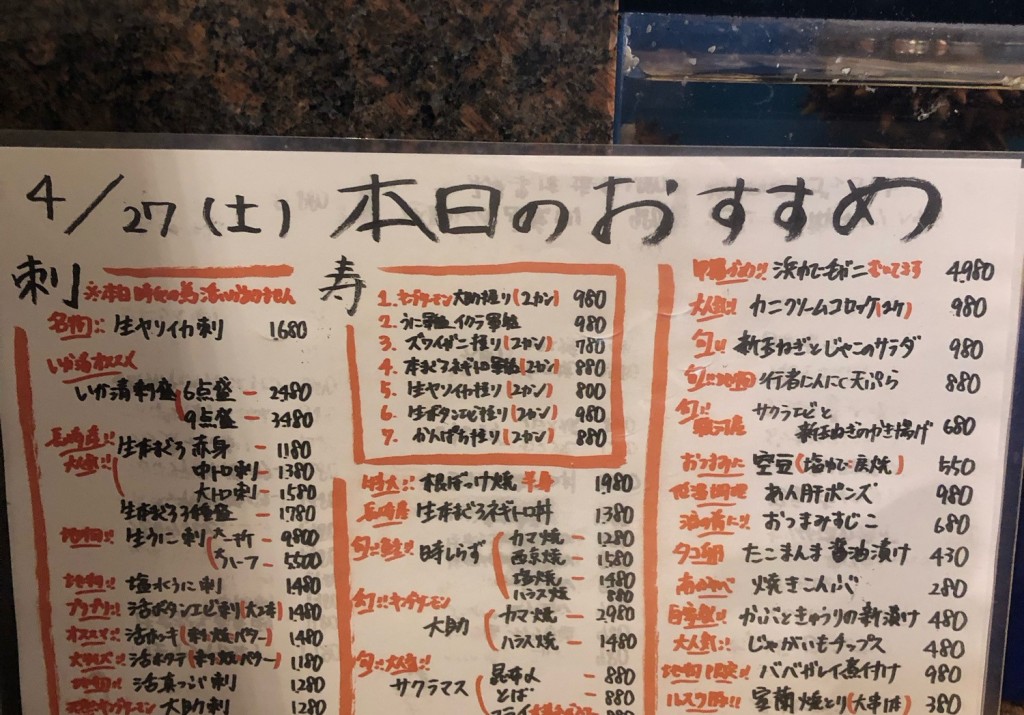 4/27(土) 本日のおすすめ
刺
名物!! 生ヤリイカ刺 1680
いか清オススメ
いか清刺盛 6点盛 - 2480
9点盛 - 3480
長崎産!! 生本まぐろ 赤身 - 1180
大人気!! 中トロ刺 - 1380
大トロ刺 - 1580
生本まぐろ3種盛 - 1780
地物!! 生うに刺 大一折 - 9800
ハーフ - 5500
地物!! 塩水うに刺 1480
プリプリ!! 活ボタンエビ刺(大2本) 1480
オススメ!! 活ホッキ(刺・焼・バター) 1480
活ホタテ(刺・焼・バター) 1180
地物!! 活真つぶ刺 1280
大助刺 1280
寿
1. キングサーモン大助握り(2カン) 980
2. うに軍艦、イクラ軍艦 980
3. ズワイガニ握り(2カン) 780
4. 本まぐろネギトロ軍艦(2カン) 880
5. 生ヤリイカ握り(2カン) 800
6. 生ボタンエビ握り(2カン) 980
7. かんぱち握り(2カン) 880
特大!! 根ぼっけ焼 半身 1980
長崎産 生本まぐろネギトロ丼 1380
旬!! 鮭!! 時しらず カマ焼 - 1280
西京焼 - 1580
塩焼 - 1480
ハラス焼 880
旬!! キングサーモン
大助 カマ焼 - 2980
ハラス焼 - 1480
旬!! 大人気!!
サクラマス 昆布〆 - 880
とば - 880
フライ
浜ゆで毛ガニ むいてます 4980
大人気!! カニクリームコロッケ(2ケ) 980
旬!! 新玉ねぎとじゃこのサラダ 980
旬!! 地物 行者にんにく天ぷら 880
旬!! 駿河産 サクラエビと
新玉ねぎのかき揚げ 680
おつまみに 空豆(塩ゆで・炭焼) 550
低温調理 あん肝ポンズ 980
酒の肴に!! おつまみすじこ 680
タコの卵 たこまんま醤油漬け 430
焼きこんぶ 280
自家製!! かぶときゅうりの新漬け 480
大人気!! じゃがいもチップス 480
ババガレイ煮付け 980
室蘭焼とり(大串1本) 380